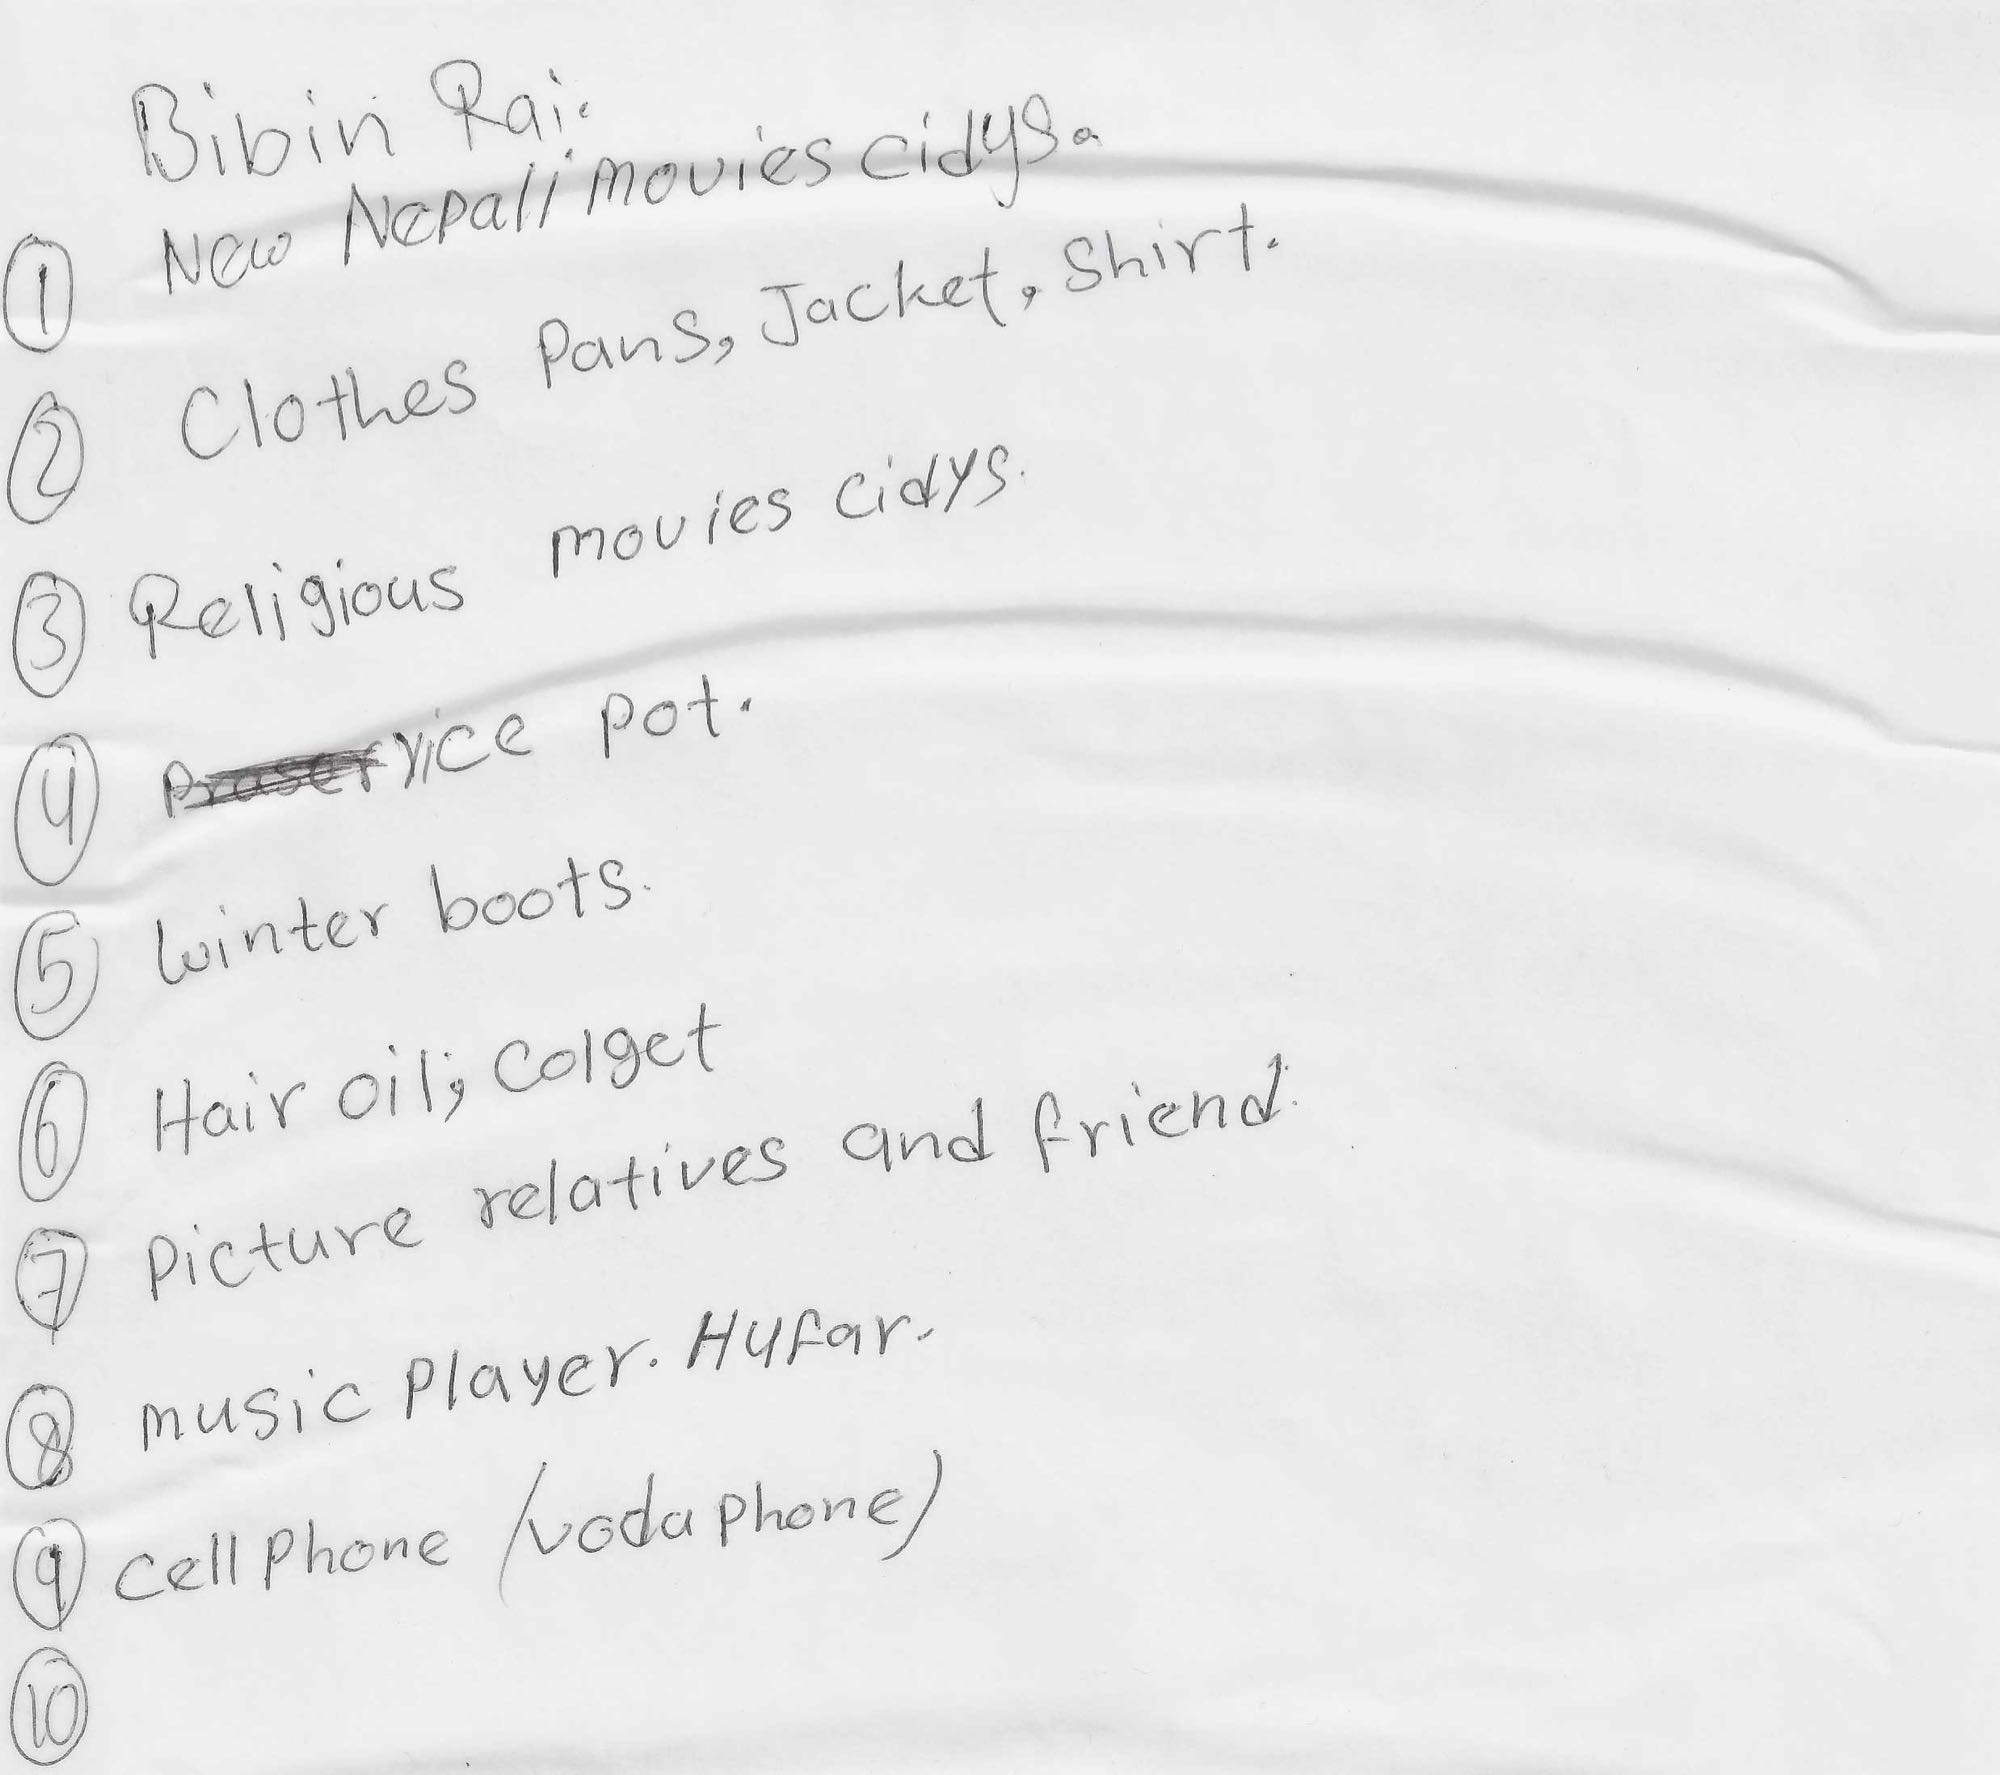 Bibin Rai.
① New Nepali movies cidys.
② Clothes Pans, Jacket, Shirt.
③ Religious movies cidys.
④ rice pot.
⑤ winter boots.
⑥ Hair oil, Colget
⑦ Picture relatives and friend.
⑧ music Player. Hufar.
⑨ cell Phone (vodaphone)
⑩